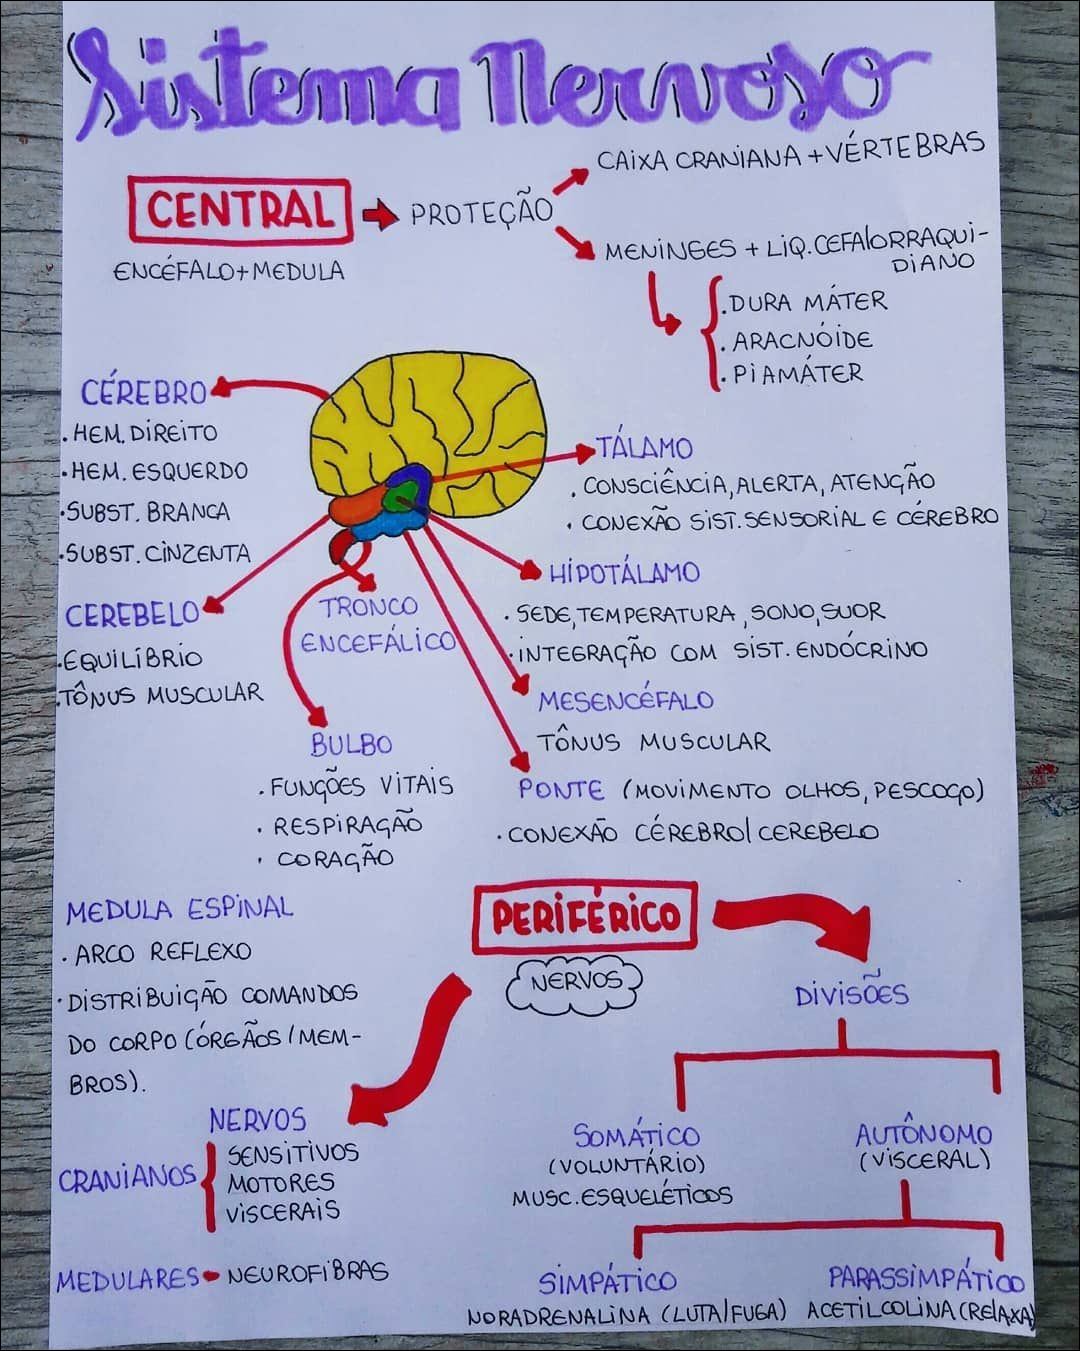 Sistema Nervoso
CENTRAL
ENCÉFALO+MEDULA
PROTEÇÃO
CAIXA CRANIANA + VÉRTEBRAS
MENINGES + LIQ. CEFALORRAQUI-
DIANO
. DURA MÁTER
. ARACNÓIDE
. PIAMÁTER
CÉREBRO
. HEM. DIREITO
. HEM. ESQUERDO
. SUBST. BRANCA
. SUBST. CINZENTA
CEREBELO
. EQUILÍBRIO
. TÔNUS MUSCULAR
TRONCO
ENCEFÁLICO
BULBO
. FUNÇÕES VITAIS
. RESPIRAÇÃO
. CORAÇÃO
TÁLAMO
. CONSCIÊNCIA, ALERTA, ATENÇÃO
. CONEXÃO SIST. SENSORIAL E CÉREBRO
HIPOTÁLAMO
. SEDE, TEMPERATURA, SONO, SUOR
. INTEGRAÇÃO COM SIST. ENDÓCRINO
MESENCÉFALO
TÔNUS MUSCULAR
PONTE (MOVIMENTO OLHOS, PESCOÇO)
. CONEXÃO CÉREBRO/CEREBELO
MEDULA ESPINAL
. ARCO REFLEXO
. DISTRIBUIÇÃO COMANDOS
DO CORPO (ÓRGÃOS/MEM-
BROS).
PERIFÉRICO
NERVOS
NERVOS
CRANIANOS
SENSITIVOS
MOTORES
VISCERAIS
MEDULARES
NEUROFIBRAS
DIVISÕES
SOMÁTICO
(VOLUNTÁRIO)
MUSC. ESQUELÉTICOS
AUTÔNOMO
(VISCERAL)
SIMPÁTICO
NORADRENALINA (LUTA/FUGA)
PARASSIMPÁTICO
ACETILCOLINA (RELAXA)